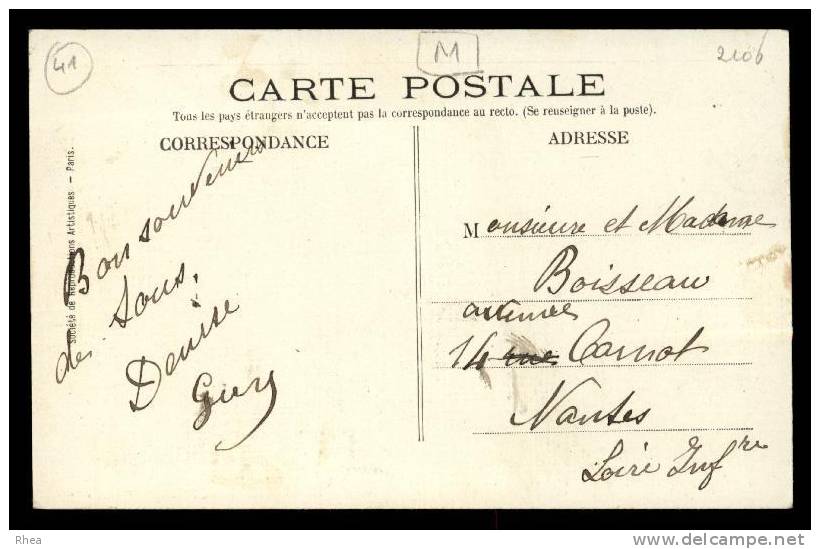 41
M
2106
CARTE POSTALE
Tous les pays étrangers n'acceptent pas la correspondance au recto. (Se renseigner à la poste).
CORRESPONDANCE
ADRESSE
Société de Reproductions Artistiques — Paris.
Bon souvenir
de Tous.
Denise
Guy
Monsieure et Madame
Boisseau
avenue
14 rue Carnot
Nantes
Loire Infre
Rhea
www.delcampe.net